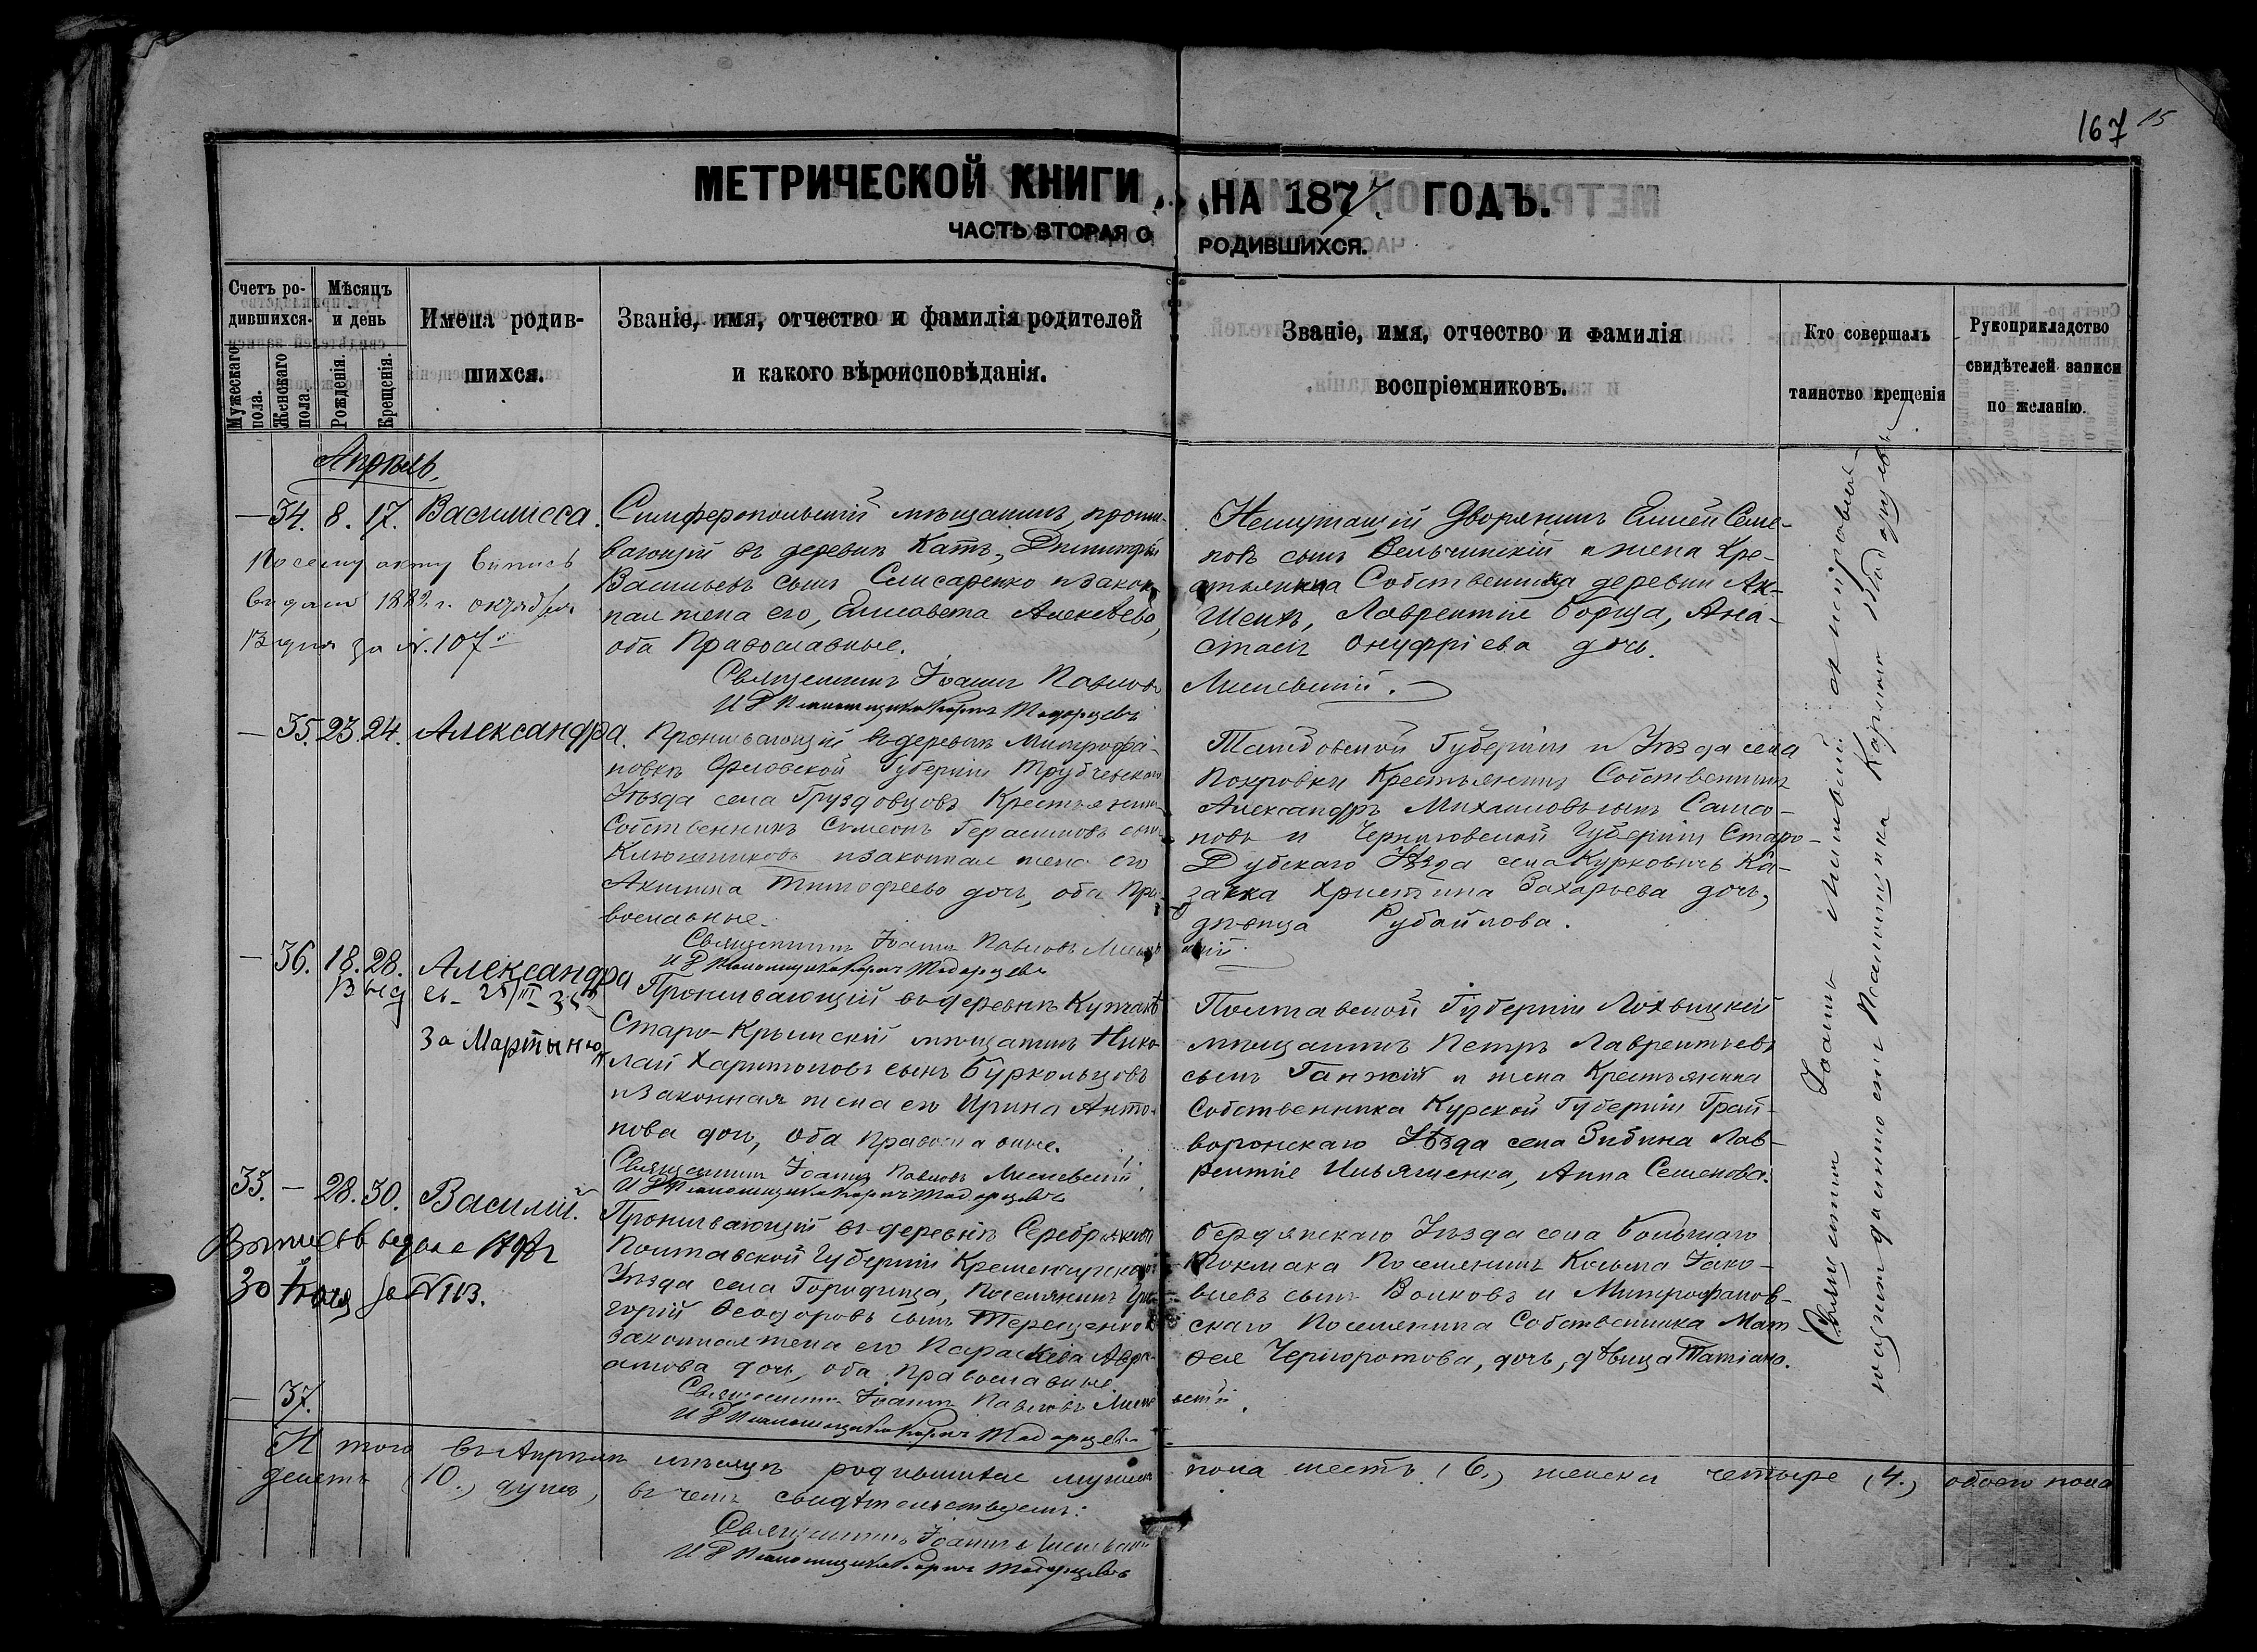 167 15
МЕТРИЧЕСКОЙ КНИГИ НА 1877 ГОДЪ.
ЧАСТЬ ВТОРАЯ О РОДИВШИХСЯ.
Счетъ ро-
дившихся.
Мужескаго пола.
Женскаго пола.
Мѣсяцъ
и день
Рожденія.
Крещенія.
Имена родив-
шихся.
Званіе, имя, отчество и фамилія родителей
и какого вѣроисповѣданія.
Званіе, имя, отчество и фамилія
воспріемниковъ.
Кто совершалъ
таинство крещенія
Рукоприкладство
свидѣтелей записи
по желанію.
Апрѣль,
— 34. 8. 17. Василисса.
По сему акту выпись
выдана 1882 г. октября
13 дня за №. 107
Симферопольскій мѣщанинъ, прожи-
вающій въ деревнѣ Катъ, Димитрій
Васильевъ сынъ Слисаренко и закон-
ная жена его, Елисавета Алексѣева,
оба Православные.
Священникъ Іоаннъ Павловъ
Нещутащій Дворянинъ Семе-
новъ сынъ Вельчинскій и жена Кре-
стьянина Собственника деревни Ак-
Шеихъ, Лаврентія Борща, Ана-
стасія Онуфріева дочь.
— 35. 23. 24. Александра.
Проживающій въ деревнѣ Митрофа-
новкѣ Орловской Губерніи Трубчевскаго
Уѣзда села Груздовцовъ Крестьянинъ
Собственникъ Симеонъ Герасимовъ сынъ
Ключниковъ и законная жена его
Акилина Тимофеева дочь, оба Пра-
вославные.
Священникъ Іоаннъ Павловъ
Тамбовской Губерніи и Уѣзда села
Покровки Крестьянинъ Собственникъ
Александръ Михаиловъ сынъ Само-
новъ и Черниговской Губерніи Старо-
Дубскаго Уѣзда села Курковичъ Ка-
зачка Христина Захарьева дочь,
дѣвица Рубайлова.
— 36. 18. 28. Александра
За Мартынюк
Проживающій въ деревнѣ Кутлакѣ
Старо-Крымскій мѣщанинъ Нико-
лай Харитоновъ сынъ Буркольцовъ
и законная жена его Ирина Анто-
нова дочь, оба православные.
Священникъ Іоаннъ Павловъ
Полтавской Губерніи Лохвицкій
мѣщанинъ Петръ Лаврентьевъ
сынъ Ганжій и жена Крестьянина
Собственника Курской Губерніи Грай-
воронскаго Уѣзда села Зибина Лав-
рентія Ильяшенка, Анна Семенова.
35. — 28. 30. Василій.
Выпись выдана
30 Июля за №113.
Проживающій въ деревнѣ
Полтавской Губерніи Кременчугскаго
Уѣзда села Городища, Поселянинъ Гри-
горій Ѳеодоровъ сынъ Терещенко и
законная жена его Параскева Авра-
амова дочь, оба православные
Священникъ Іоаннъ Павловъ
Бердянскаго Уѣзда села Большаго
Токмака Поселянинъ Косьма Іако-
влевъ сынъ Волковъ и Митрофанов-
скаго Поселянина Собственника Мат-
ѳея Черноротова, дочь, дѣвица Татіана.
— 37.
Итого въ Апрѣлѣ мѣсяцѣ родившихся мужеска пола шесть (6.) женска четыре (4.) обоего пола
десять (10.) душъ, въ чемъ свидѣтельствуемъ:
Священникъ Іоаннъ
Священникъ Іоаннъ